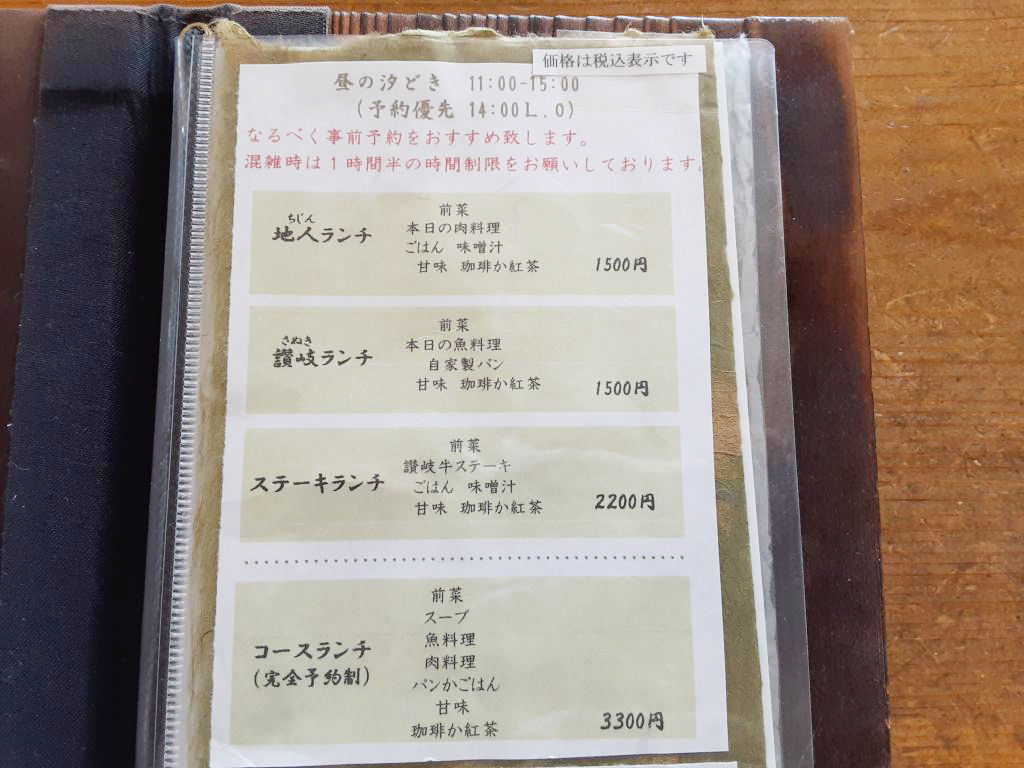 価格は税込表示です
昼の汐どき 11:00-15:00
(予約優先 14:00L.O)
なるべく事前予約をおすすめ致します。
混雑時は1時間半の時間制限をお願いしております。
ちじん
地人ランチ
前菜
本日の肉料理
ごはん 味噌汁
甘味 珈琲か紅茶
1500円
さぬき
讃岐ランチ
前菜
本日の魚料理
自家製パン
甘味 珈琲か紅茶
1500円
ステーキランチ
前菜
讃岐牛ステーキ
ごはん 味噌汁
甘味 珈琲か紅茶
2200円
コースランチ
(完全予約制)
前菜
スープ
魚料理
肉料理
パンかごはん
甘味
珈琲か紅茶
3300円